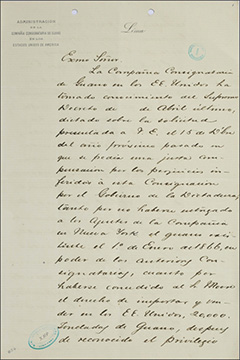 ADMINISTRACIÓN
DE LA
COMPAÑIA CONSIGNATARIA DE GUANO
EN LOS
ESTADOS UNIDOS DE AMERICA
Lima
Exmo Señor.
La Compañia Consignataria
de Guano en los EE. Unidos ha
tomado conocimiento del Supremo
Decreto de de Abril último,
dictado sobre la solicitud
presentada a V.E. el 15 de
del año próximo pasado en
que se pedia una justa com-
pensacion por los perjuicios in-
feridos à esta Consignacion
por el Gobierno de la Dictadura,
tanto por no haberse entregado
a los Agentes de la Compañia
en Nueva York el guano exis-
tente el 1º de Enero de 1866, en
poder de los anteriores Con-
signatarios, cuanto por
haberse concedido al
el derecho de importar y ven-
der en los EE. Unidos 20,000
Toneladas de Guano, despues
de reconocido el privilegio